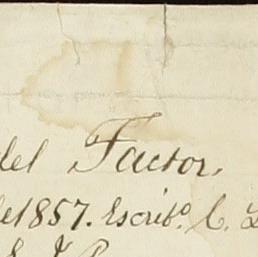 del Factor,
de 1857. Escribº. C.